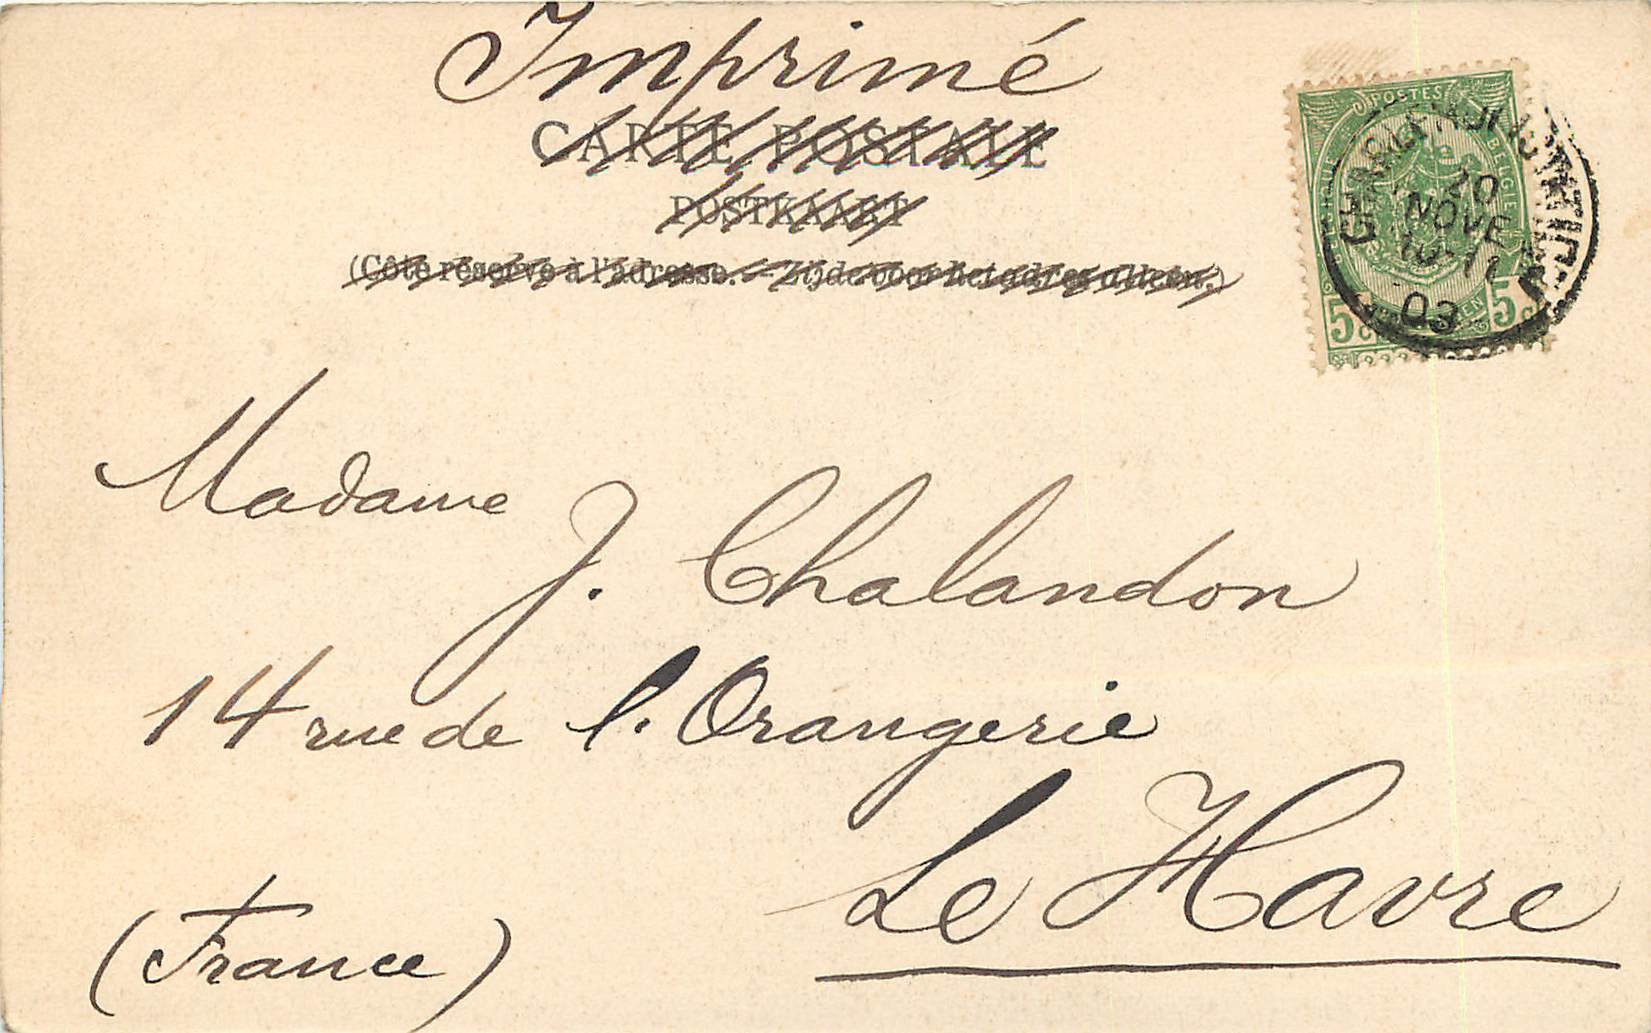 Imprimé
CARTE POSTALE
POSTKAART
(Côté réservé à l'adresse. — Zijde voor het adres alleen.)
POSTES
5 c 5 c
20
NOVE
10-11
03
Madame
J. Chalandon
14 rue de l'Orangerie
Le Havre
(France)